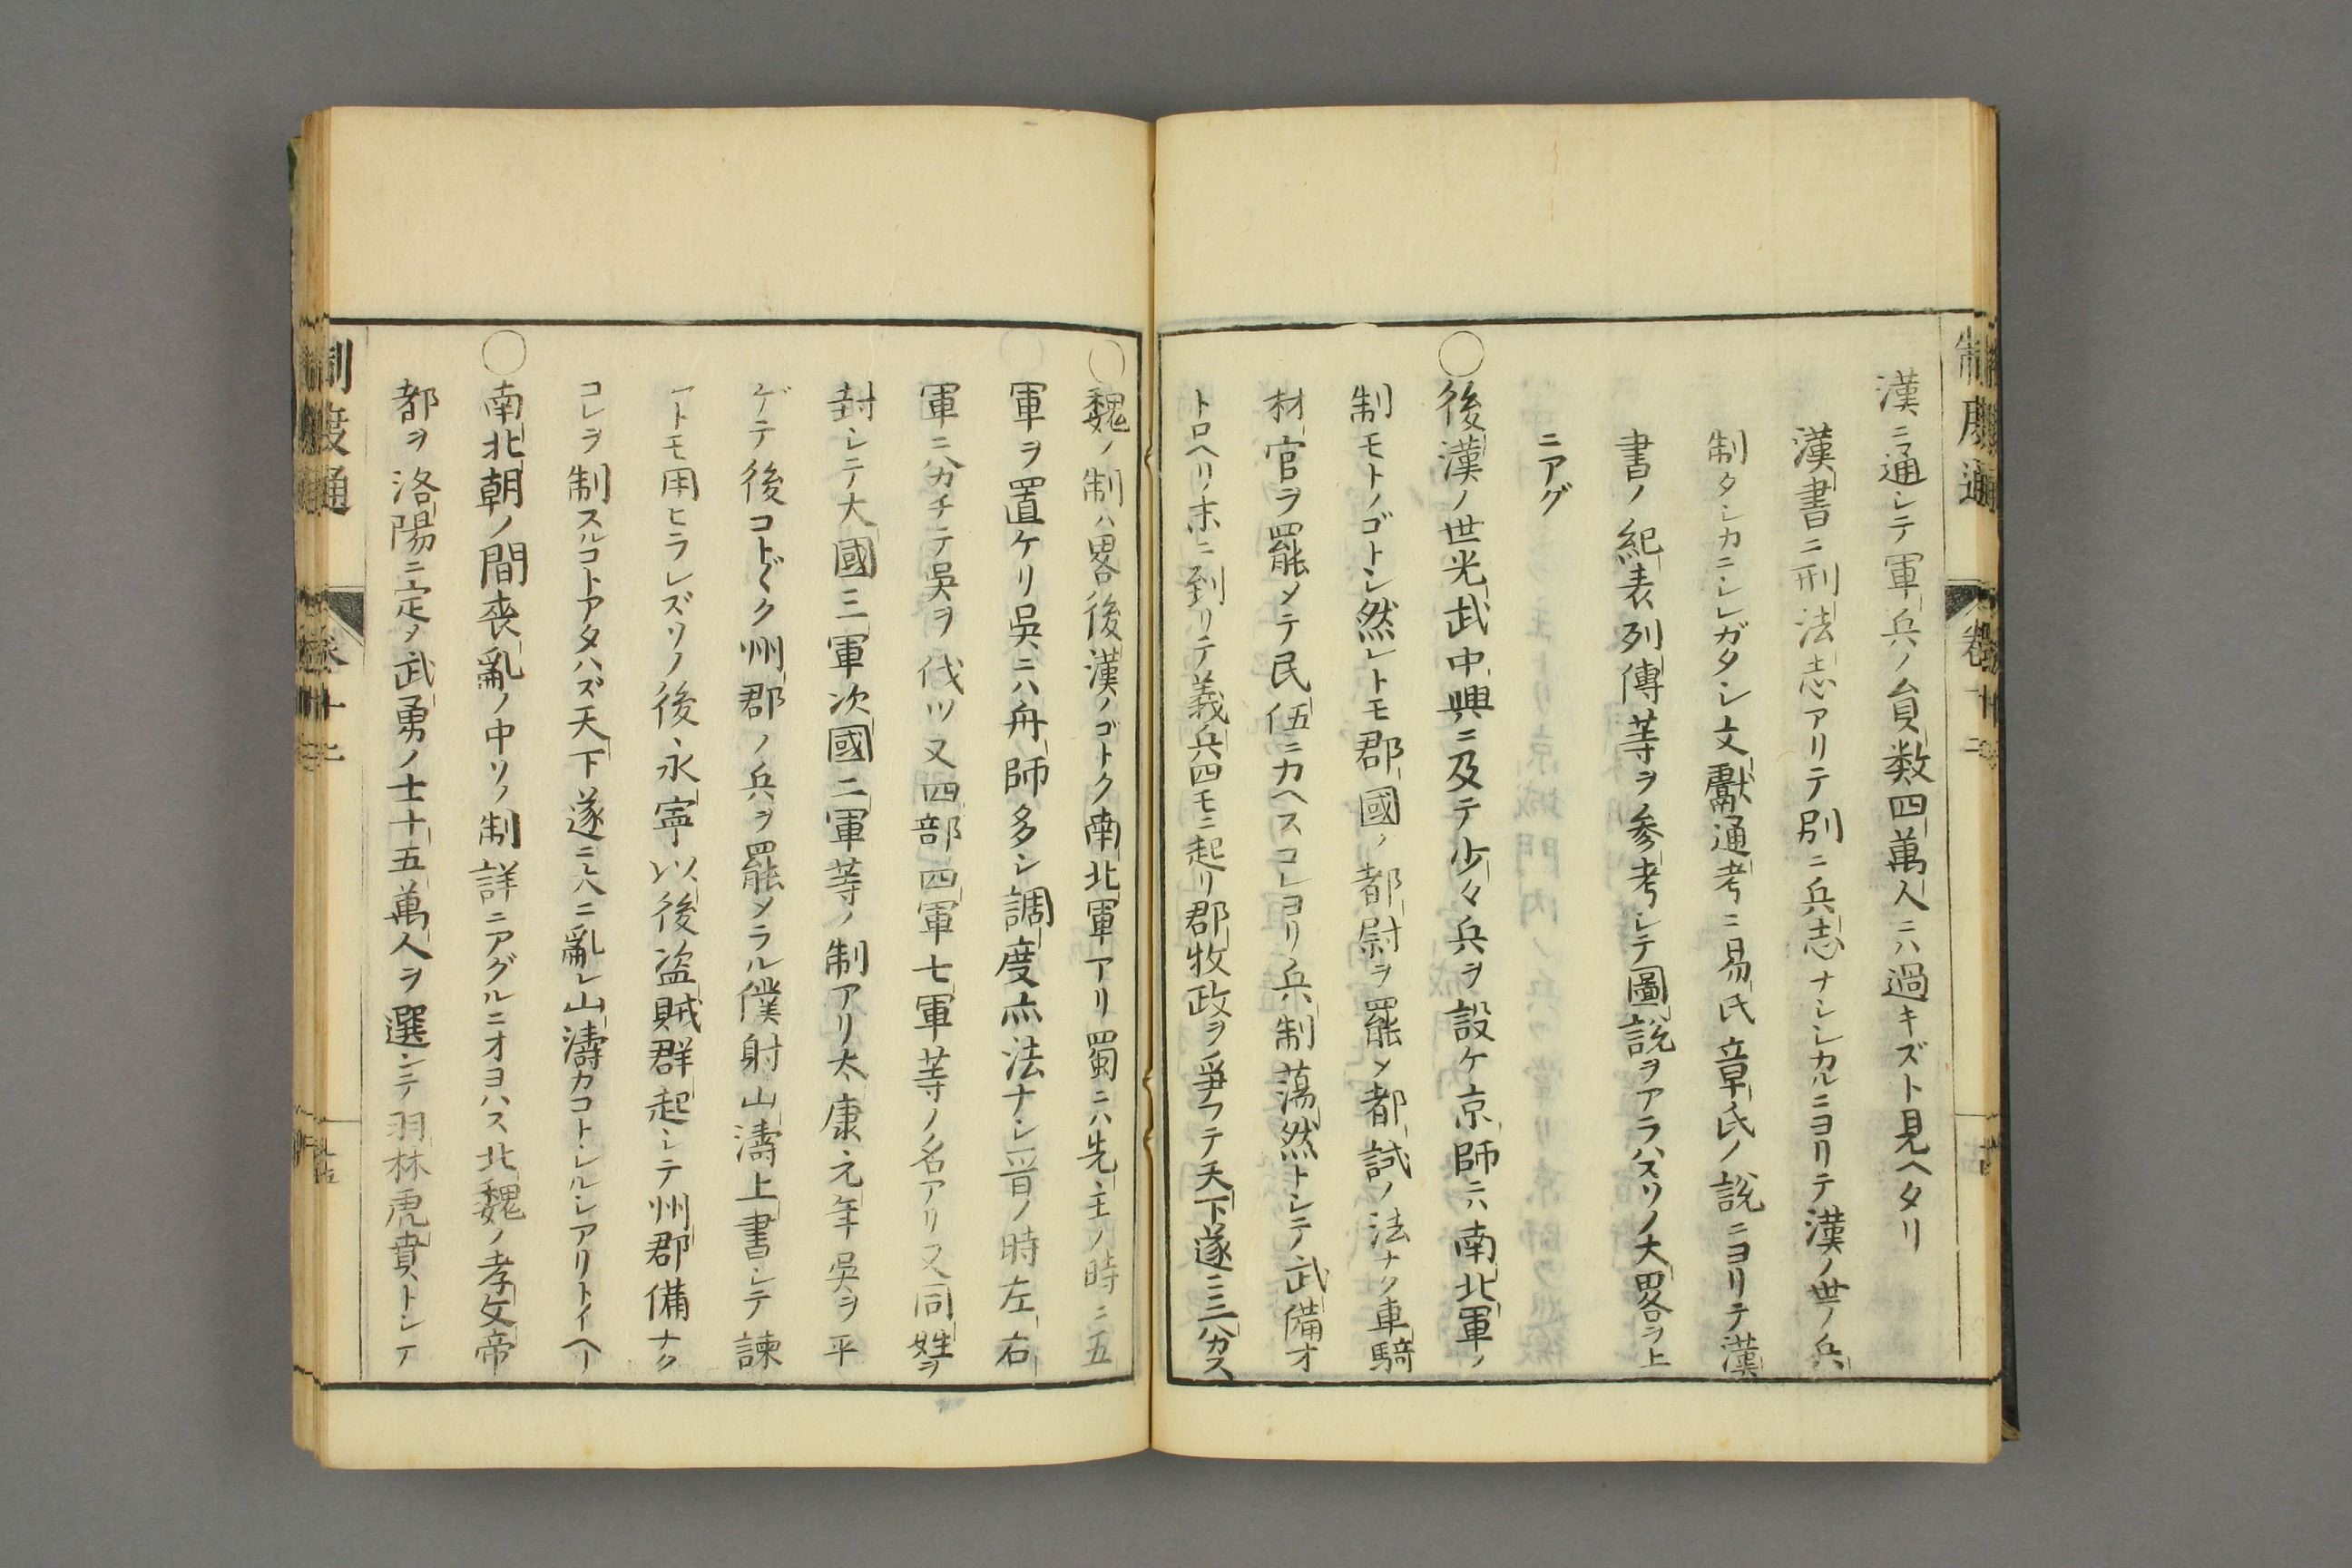 漢ニ通シテ軍兵ノ員数四萬人ニハ過キズト見ヘタリ
漢書ニ刑法志アリテ別ニ兵志ナシシカルニヨリテ漢ノ世ノ兵
制タシカニシレガタシ文獻通考ニ易氏章氏ノ說ニヨリテ漢
書ノ紀表列傳等ヲ参考シテ圖說ヲアラハスソノ大畧ヲ上
ニアグ
○後漢ノ世光武中興ニ及テ少々兵ヲ設ケ京師ニハ南北軍ノ
制モトノゴトシ然レトモ郡國ノ都尉ヲ罷メ都試ノ法ナク車騎
材官ヲ罷メテ民伍ニカヘスコレヨリ兵制蕩然トシテ武備オ
トロヘリ末ニ到リテ義兵四モニ起リ郡牧政ヲ爭フテ天下遂ニ三ハカス
○魏ノ制ハ畧後漢ノゴトク南北軍アリ蜀ニハ先主ノ時ニ五
軍ヲ置ケリ吳ニハ舟師多シ調度点法ナシ晉ノ時左右
軍ニハカチテ吳ヲ伐ツ又四部四軍七軍等ノ名アリ又同姓ヲ
封シテ大國三軍次國二軍等ノ制アリ太康元年吳ヲ平
ゲテ後コトゴトク州郡ノ兵ヲ罷メラル僕射山濤上書シテ諫
トモ用ヒラレズソノ後永寧以後盗賊群起シテ州郡備ナク
コレヲ制スルコトアタハズ天下遂ニ大ニ亂レ山濤カコトシルシアリトイヘリ
○南北朝ノ間喪亂ノ中ソノ制詳ニアグルニオヨハス北魏ノ孝文帝
都ヲ洛陽ニ定メ武勇ノ士十五萬人ヲ選シテ羽林虎賁トシテ
制度通 卷十二